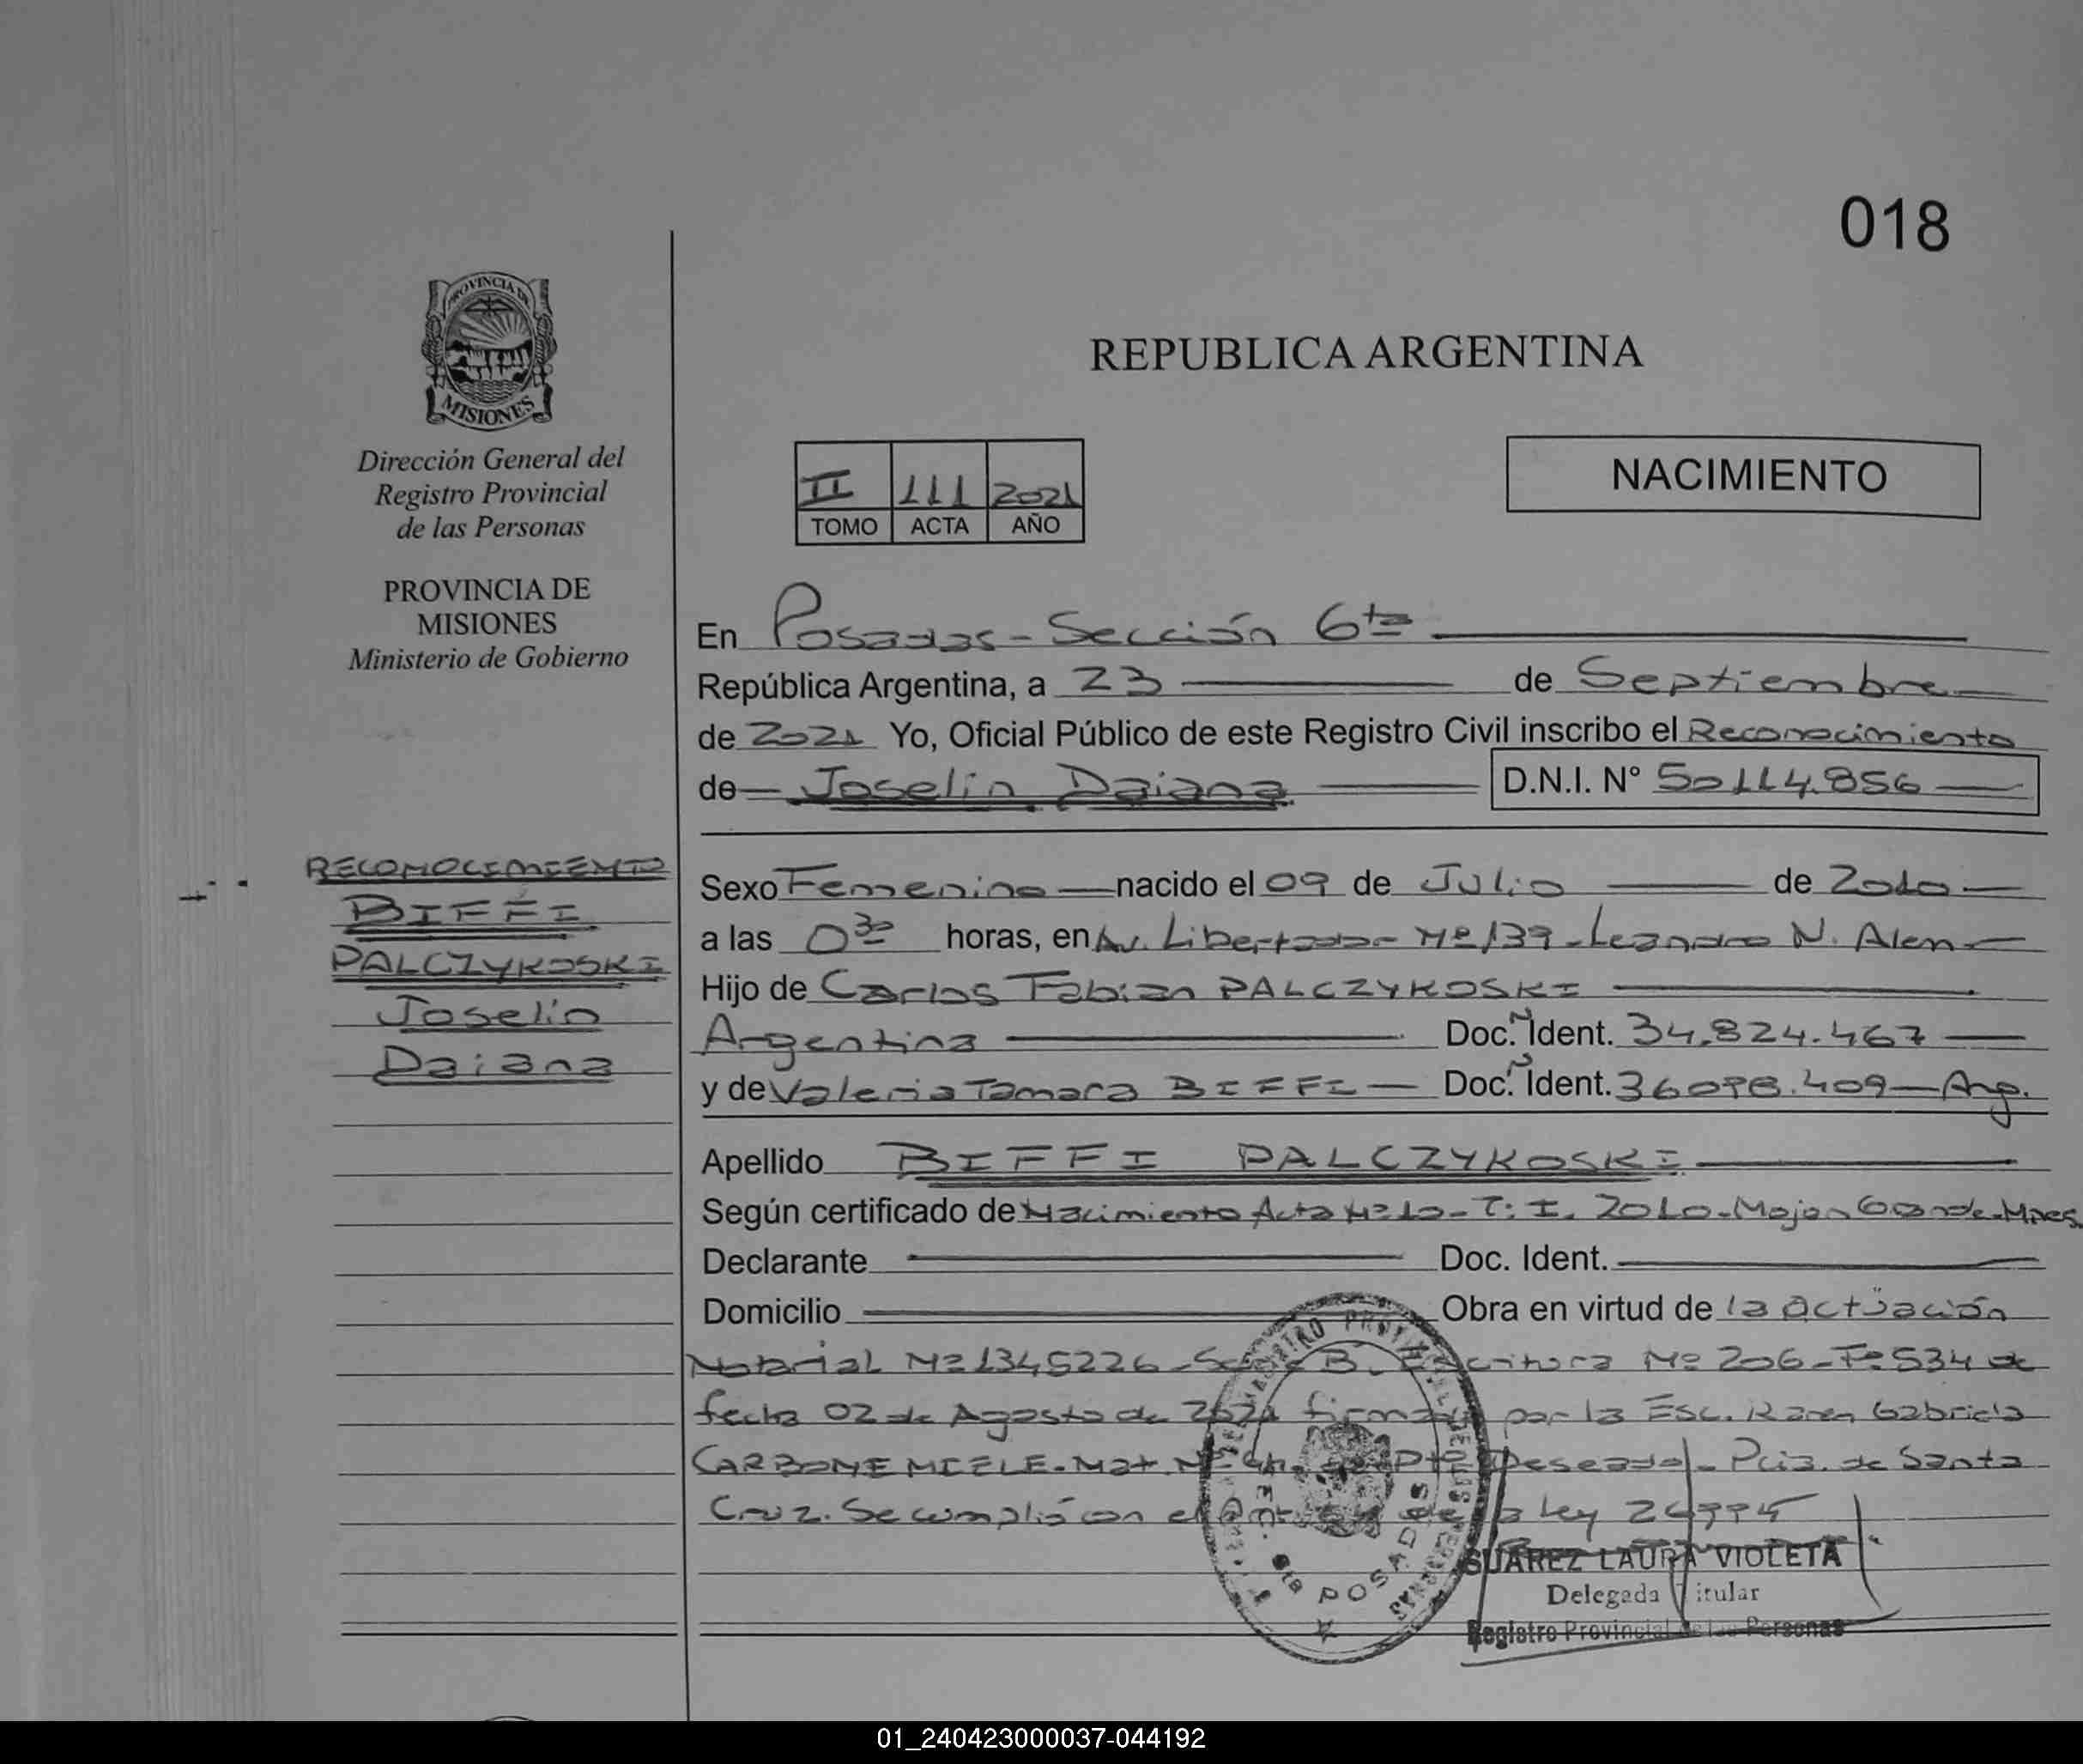 018
PROVINCIA DE
MISIONES
Dirección General del
Registro Provincial
de las Personas
PROVINCIA DE
MISIONES
Ministerio de Gobierno
REPUBLICA ARGENTINA
II 111 2021
TOMO ACTA AÑO
NACIMIENTO
En Posadas - Sección 6ta
República Argentina, a 23 de Septiembre
de 2021 Yo, Oficial Público de este Registro Civil inscribo el Reconocimiento
de Joselin Daiana D.N.I. N° 50114.856
RECONOCIMIENTO
BIFFI
PALCZYKOSKI
Joselin
Daiana
Sexo Femenino nacido el 09 de Julio de 2010
a las 0 30 horas, en Av. Libertador Nº 139 - Leandro N. Alem
Hijo de Carlos Fabian PALCZYKOSKI
Argentina Doc. Ident. 34.824.467
y de Valeria Tamara BIFFI Doc. Ident. 36098.409 - Arg.
Apellido BIFFI PALCZYKOSKI
Según certificado de Nacimiento Acta Nº 10 - T: I. 2010 - Mojon Grande - Mnes
Declarante Doc. Ident.
Domicilio Obra en virtud de la actuación
Notarial Nº 1345226 - Serie B. Escritura Nº 206 - Fº 534 de
fecha 02 de Agosto de 2021 firmada por la Esc. Karen Gabriela
CARBONE MIELE - Mat. Nº Pto Deseado - Pcia. de Santa
Cruz. Se cumplió con el de la Ley
SUAREZ LAURA VIOLETA
Delegada Titular
Registro Provincial de las Personas
6ta POSADAS
01_240423000037-044192